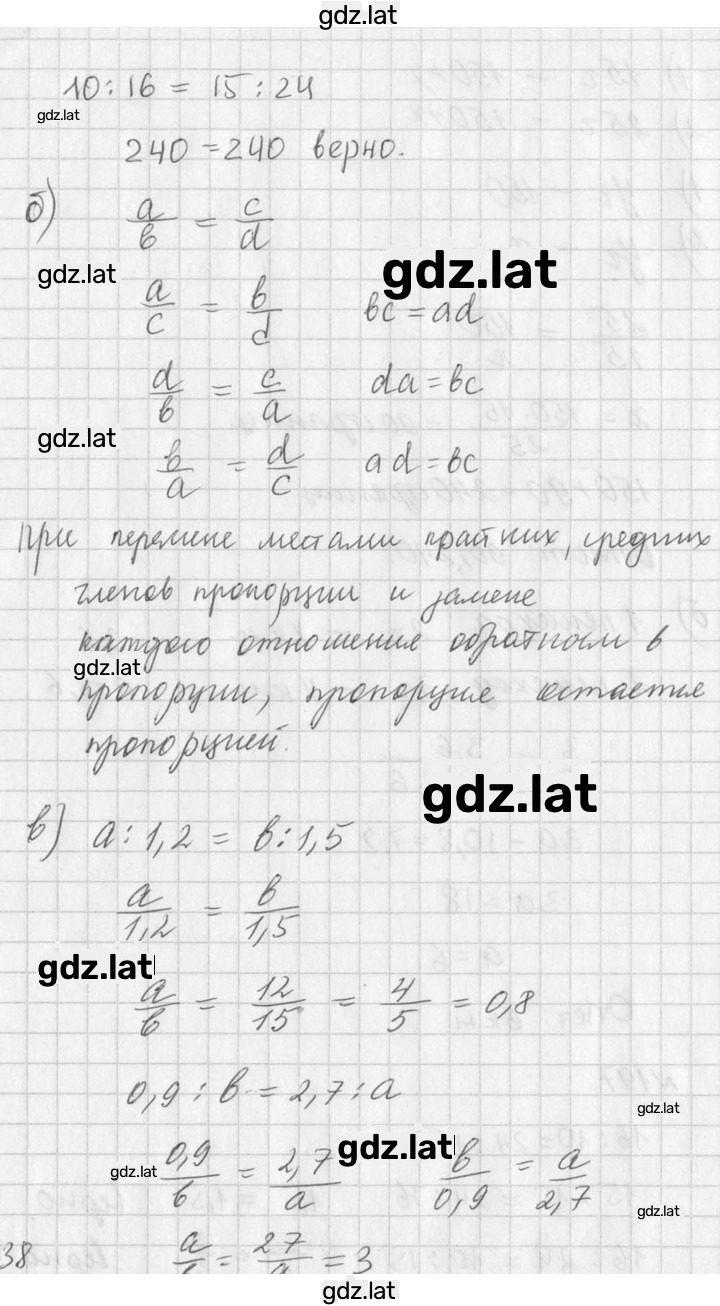 gdz.lat
10 : 16 = 15 : 24
gdz.lat
240 = 240 верно.
б) a/b = c/d
gdz.lat
gdz.lat
a/c = b/d bc = ad
d/b = c/a da = bc
gdz.lat
b/a = d/c ad = bc
При перемене местами крайних, средних
членов пропорции и замене
каждого отношения обратным в
gdz.lat
пропорции, пропорция остается
пропорцией.
gdz.lat
в) a : 1,2 = b : 1,5
a/1,2 = b/1,5
gdz.lat
a/b = 12/15 = 4/5 = 0,8
0,9 : b = 2,7 : a
gdz.lat
gdz.lat
gdz.lat
0,9/b = 2,7/a b/0,9 = a/2,7
gdz.lat
38 = 27/ = 3
gdz.lat